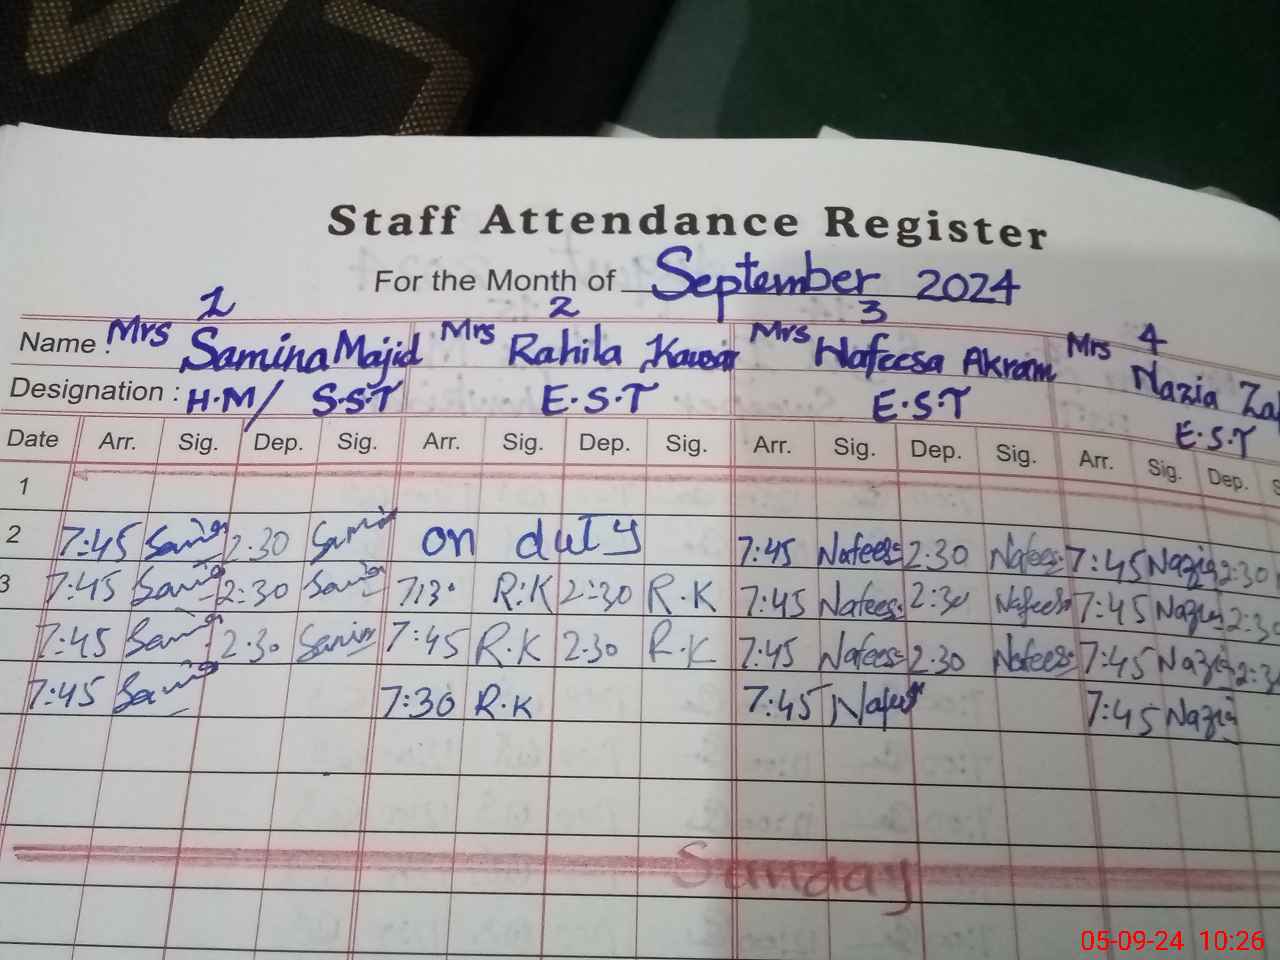 Staff Attendance Register
For the Month of September 2024
1 2 3 4
Name : Mrs Samina Majid Mrs Rahila Kausar Mrs Nafeesa Akram Mrs Nazia
Designation : H.M/ S.S.T E.S.T E.S.T E.S.T
Date Arr. Sig. Dep. Sig. Arr. Sig. Dep. Sig. Arr. Sig. Dep. Sig. Arr. Sig. Dep. S
1
2 7:45 2:30 on duty 7:45 Nafees 2:30 Nafees 7:45 Nazia 2:30
3 7:45 2:30 7:30 R.K 2:30 R.K 7:45 Nafees 2:30 Nafees 7:45 Nazia 2:3
7:45 2:30 7:45 R.K 2:30 R.K 7:45 Nafees 2:30 Nafees 7:45 Nazia 2:3
7:45 7:30 R.K 7:45 7:45 Nazia
Sunday
05-09-24 10:26